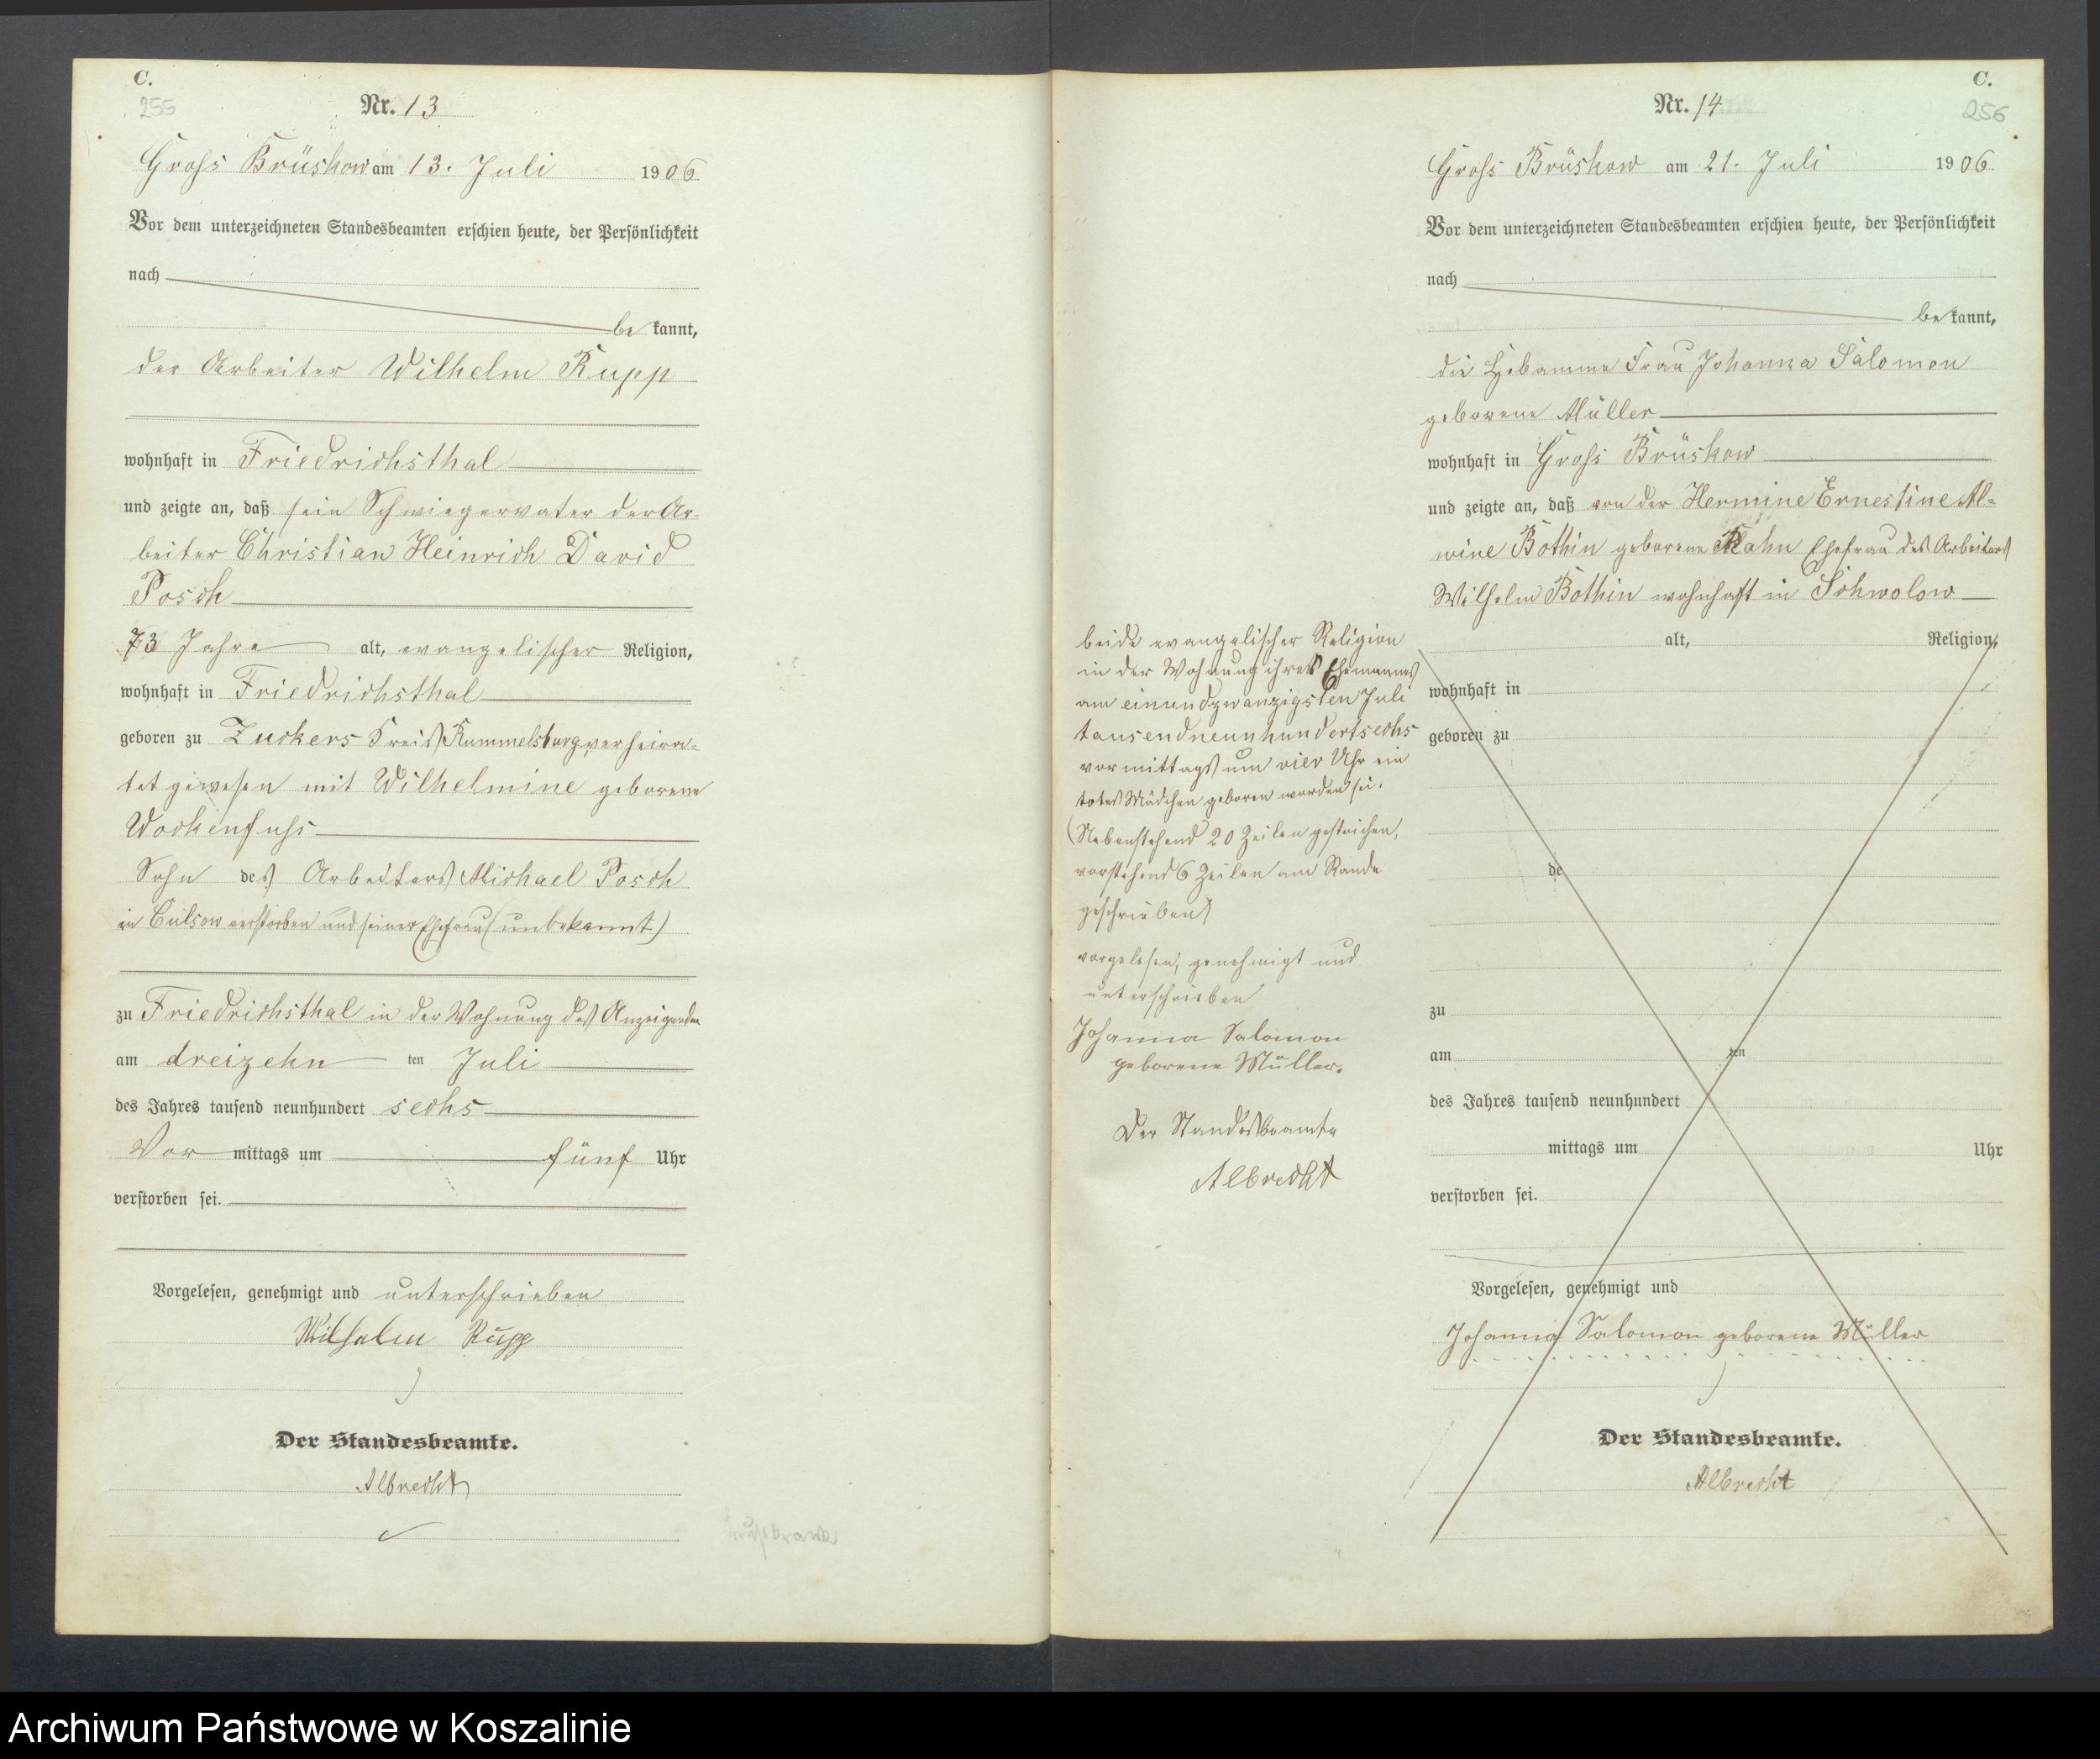 C.
255
Nr. 13
Gross Brüskow am 13. Juli 1906
Vor dem unterzeichneten Standesbeamten erschien heute, der Persönlichkeit
nach
be kannt,
der Arbeiter Wilhelm Rupp
wohnhaft in Friedrichsthal
und zeigte an, daß sein Schwiegervater der Ar-
beiter Christian Heinrich David
Posch
73 Jahre alt, evangelischer Religion,
wohnhaft in Friedrichsthal
geboren zu Zuckers Kreis Rummelsburg verheira-
tet gewesen mit Wilhelmine geborene
Wockenfuss
Sohn des Arbeiters Michael Posch
in Culsow verstorben und seiner Ehefrau (unbekannt)
zu Friedrichsthal in der Wohnung des Anzeigenden
am dreizehn ten Juli
des Jahres tausend neunhundert sechs
Vor mittags um fünf Uhr
verstorben sei.
Vorgelesen, genehmigt und unterschrieben
Wilhelm Rupp
Der Standesbeamte.
Albrecht
C.
256
Nr. 14
Gross Brüskow am 21. Juli 1906
Vor dem unterzeichneten Standesbeamten erschien heute, der Persönlichkeit
nach
be kannt,
die Hebamme Frau Johanna Salomon
geborene Müller
wohnhaft in Gross Brüskow
und zeigte an, daß von der Hermine Ernestine Al-
wine Bothin geborene Rahn Ehefrau des Arbeiters
Wilhelm Bothin wohnhaft in Schwolow
alt, Religion,
wohnhaft in
geboren zu
de
zu
am ten
des Jahres tausend neunhundert
mittags um Uhr
verstorben sei.
Vorgelesen, genehmigt und
Johanna Salomon geborene Müller
Der Standesbeamte.
Albrecht
beide evangelischer Religion
in der Wohnung ihres Ehemannes
am einundzwanzigsten Juli
tausendneunhundertsechs
vormittags um vier Uhr ein
totes Mädchen geboren worden sei.
(Nebenstehend 20 Zeilen gestrichen,
vorstehend 6 Zeilen am Rande
geschrieben)
vorgelesen, genehmigt und
unterschrieben
Johanna Salomon
geborene Müller.
Der Standesbeamte
Albrecht
Archiwum Państwowe w Koszalinie